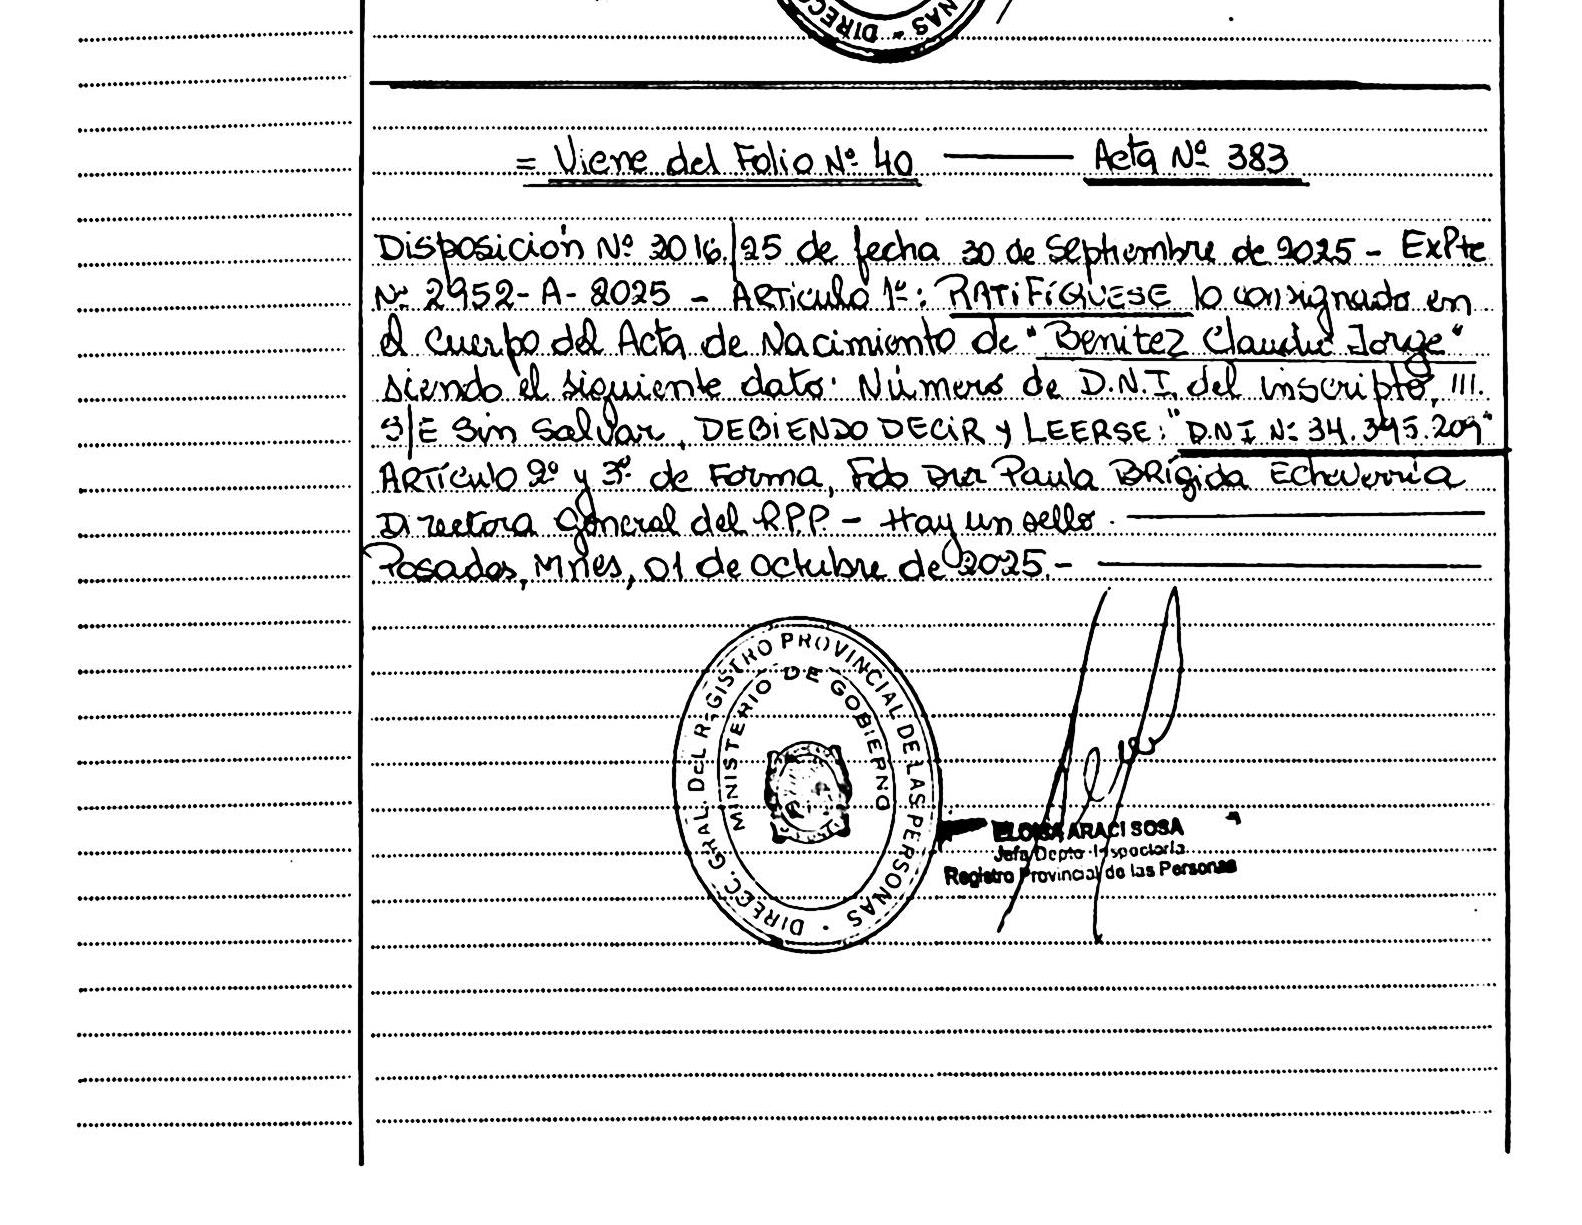 DIRECC NAS -
= Viene del Folio Nº 40 Acta Nº 383
Disposición Nº 3016/25 de fecha 30 de Septiembre de 2025 - ExPte
Nº 2952-A-2025 - ARTículo 1º: RATIFÍQUESE lo consignado en
el Cuerpo del Acta de Nacimiento de "Benitez Claudio Jorge"
siendo el siguiente dato: Número de D.N.I. del inscripto, III.
S/E Sin Salvar, DEBIENDO DECIR y LEERSE: "D.N.I Nº 34.395.209"
ARTÍCulo 2º y 3º de Forma, Fdo Dra Paula BRígida Echeverría
Directora General del R.P.P. - Hay un sello.
Posadas, Mnes, 01 de octubre de 2025.-
DIRECC. GRAL. DEL REGISTRO PROVINCIAL DE LAS PERSONAS
MINISTERIO DE GOBIERNO
ELOISA ARACI SOSA
Jefa Depto Inspectoria
Registro Provincial de las Personas